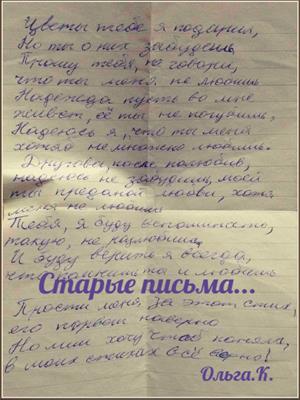 Цветы тебе я подарил,
Но ты о них забудешь
Прошу тебя, не говори,
что ты меня не любишь
Надежда пусть во мне
живёт, её ты не погубишь,
Надеюсь я, что ты меня
хотя немножко любишь.
Другого, после, полюбив,
надеюсь не забудешь, моей
ты преданой любви, хотя
меня не любишь
Тебя, я буду вспоминать,
такую, не разлюбишь
И буду верить я всегда,
что и любишь
Старые письма...
Прости меня, за этот стих,
его пу наверно
Но мне хочу чтоб поняла,
в моих стихах всё верно!
Ольга.К.